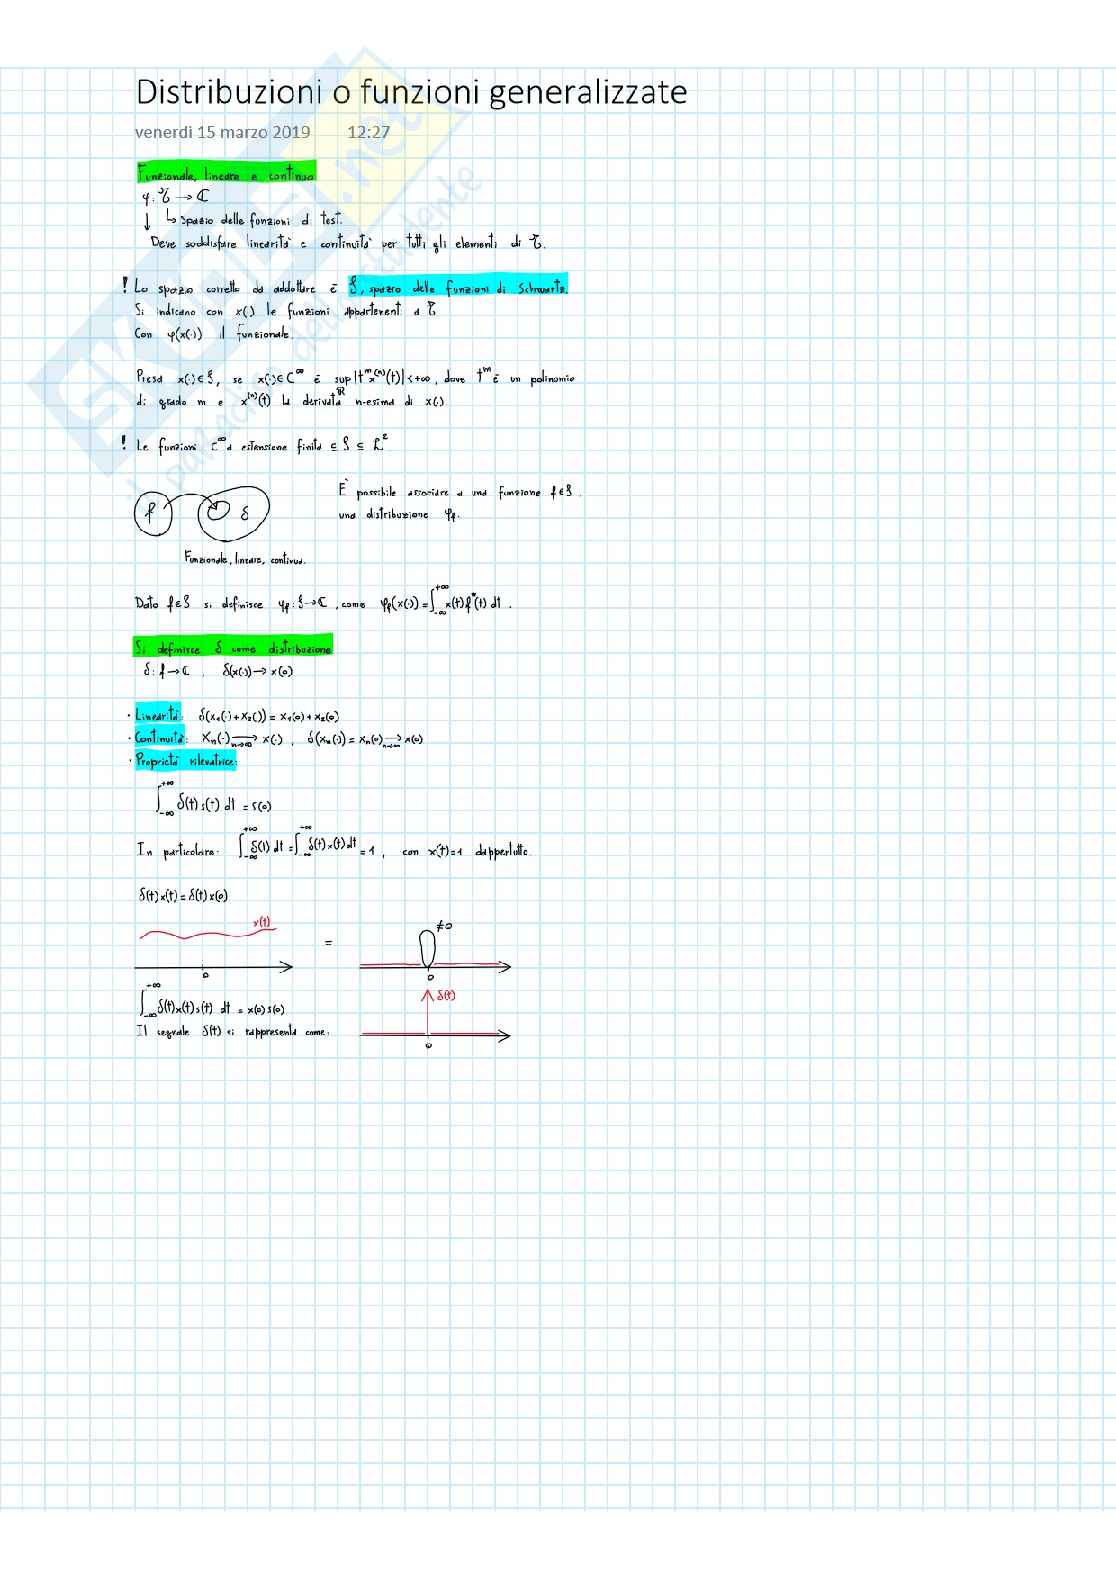 Distribuzioni o funzioni generalizzate
venerdì 15 marzo 2019 12:27
Funzionale, lineare e continuo
φ: 𝒯 → ℂ
↓ ↳ spazio delle funzioni di test.
Deve soddisfare linearità e continuità per tutti gli elementi di 𝒯.
! Lo spazio corretto da addottare è 𝒮, spazio delle funzioni di Schwartz.
Si indicano con x(·) le funzioni appartenenti a 𝒯
Con φ(x(·)) il funzionale.
Presa x(·)∈𝒮, se x(·)∈C^∞ è sup_ℝ |t^m x^(n)(t)| < +∞, dove t^m è un polinomio
di grado m e x^(n)(t) la derivata n-esima di x(·)
! Le funzioni C^∞ a estensione finita ⊆ 𝒮 ⊆ ℒ²
È possibile associare a una funzione f∈𝒮
una distribuzione φf.
f δ
Funzionale, lineare, continua.
Dato f∈𝒮 si definisce φf: 𝒮→ℂ, come φf(x(·)) = ∫_-∞^+∞ x(t)f*(t) dt.
Si definisce δ come distribuzione
δ: f→ℂ, δ(x(·))→x(0)
· Linearità: δ(x₁(·)+x₂(·)) = x₁(0)+x₂(0)
· Continuità: xn(·) →_n→∞ x(·), δ(xn(·)) = xn(0) →_n→∞ x(0)
· Proprietà rilevatrice:
∫_-∞^+∞ δ(t) s(t) dt = s(0)
In particolare: ∫_-∞^+∞ δ(t) dt = ∫_-∞^+∞ δ(t)x(t) dt = 1, con x(t)=1 dappertutto.
δ(t)x(t) = δ(t)x(0)
x(t) = ≠0
0 0
∫_-∞^+∞ δ(t)x(t)s(t) dt = x(0)s(0)
Il segnale δ(t) si rappresenta come:
δ(t)
0
SKUOLA.net